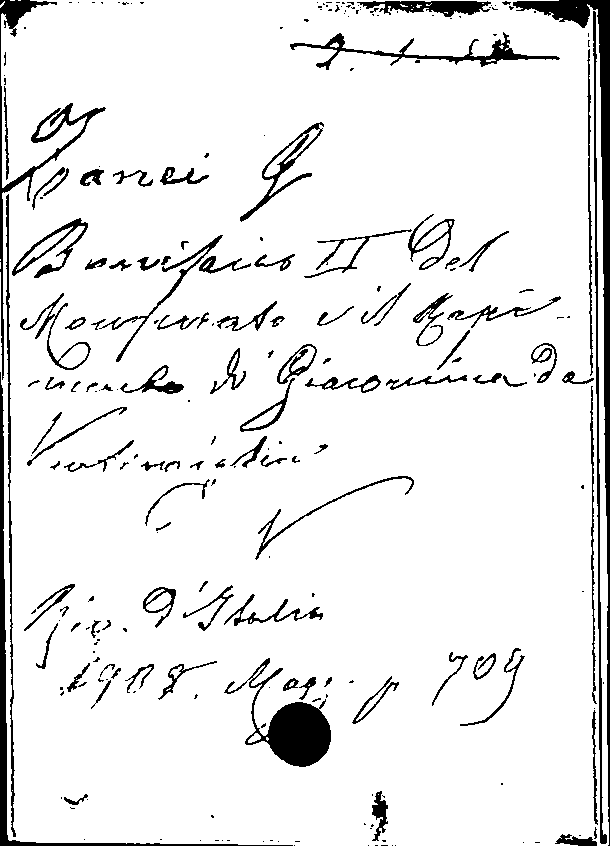 Zanei G
Bonifacio II del
Monferrato e il Rapi-
mento di Giacomina da
Ventimiglia
V
Riv. d'Italia
1908. Magg. p 709